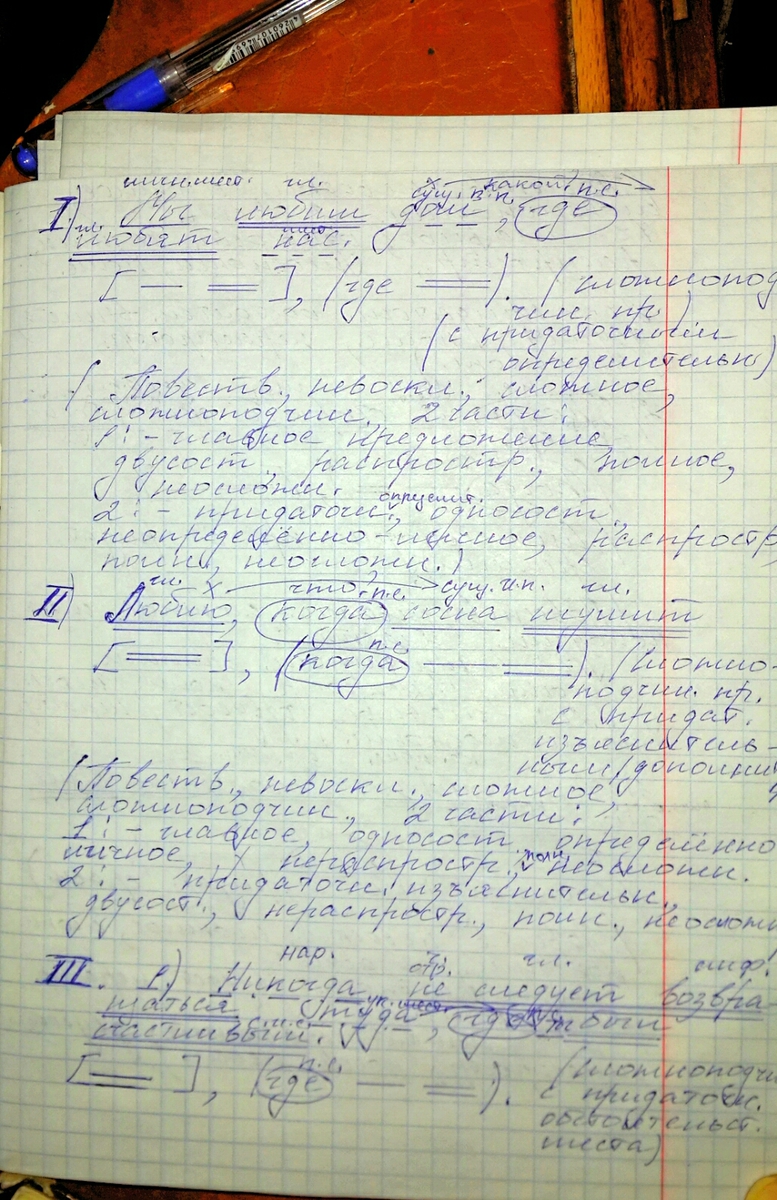 личн.мест. гл. сущ. в.п. какой? п.с.
I) Мы любим дом, где
гл. мест.
любят нас.
[— ═], (где ═). (сложнопод
чин. пр.)
(с придаточным
определительн)
(Повеств., невоскл., сложное,
сложноподчин., 2 части:
1: - главное предложение,
двусост., распростр., полное,
неосложн.
определит.
2: - придаточн., односост.,
неопределённо-личное, распростр,
полн., неосложн.)
гл. х что? п.с. сущ. и.п. гл.
II) Люблю, когда сосна шумит
п.с.
[═], (когда — ═). (Сложно-
подчин. пр.
с придат.
изъяснитель-
ным/дополнит
(Повеств., невоскл., сложное,
сложноподчин., 2 части:
1: - главное, односост., определённо
личное, нераспростр., полн., неосложн.
2: - придаточн. изъяснительн.,
двусост., нераспростр., полн., неосложн
нар. отр. гл. инф.
III. 1) Никогда не следует возвра
щаться туда, где ты был
счастливым.
п.с.
[═], (где — ═). (сложноподчи
с придаточн.
обстоятельст.
места)